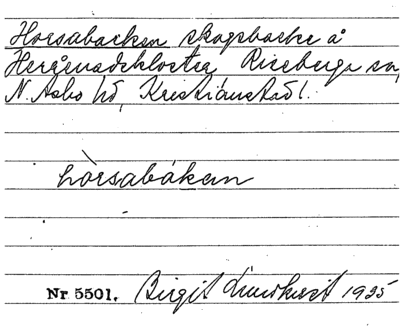 Horsabacken skogsbacke å
Herrevadskloster Riseberga sn,
N. Åsbo hd, Kristianstad l.
hòrsabákan
Nr 5501. Birgit Lindkvist 1935